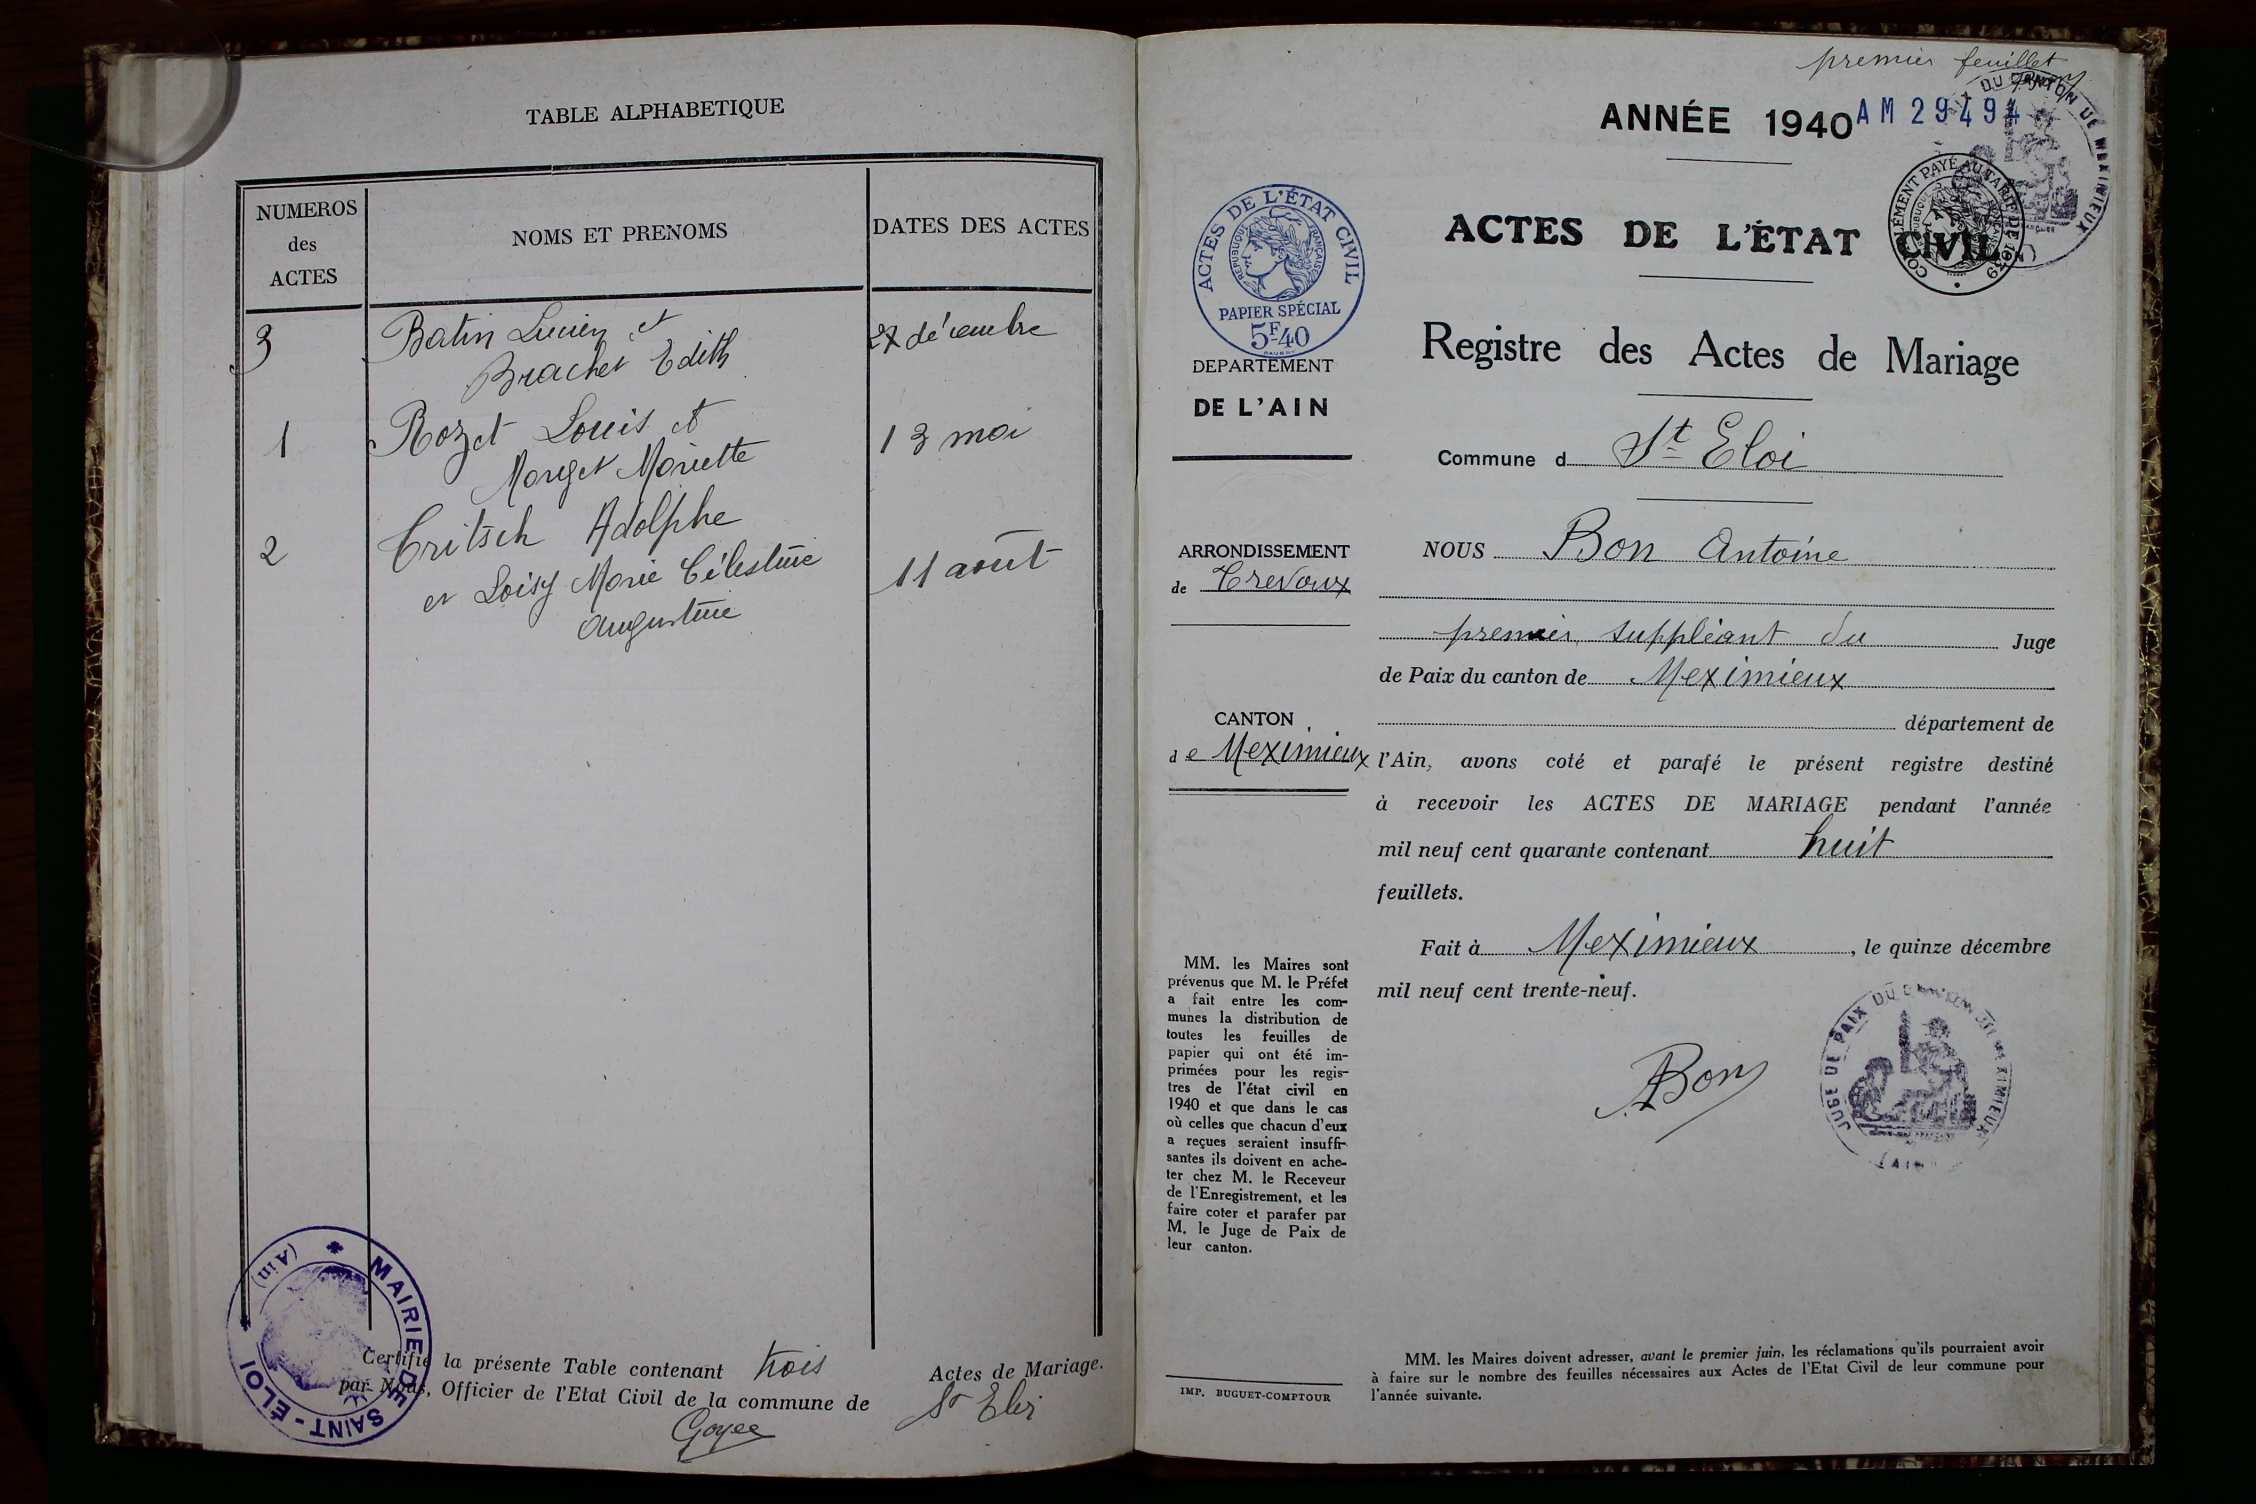 TABLE ALPHABETIQUE
NUMEROS
des
ACTES
NOMS ET PRENOMS
DATES DES ACTES
3
Batin Lucien et
27 décembre
Brachet Edith
1
Rozet Louis et
13 mai
Morget Mariette
2
Tritsch Adolphe
et Loisy Marie Célestine
11 août
Augustine
MAIRIE DE SAINT-ÉLOI
(Ain)
Certifié la présente Table contenant trois Actes de Mariage.
par Nous, Officier de l'Etat Civil de la commune de St Eloi
premier feuillet
ANNÉE 1940
AM 29494
DU CANTON DE MEXIMIEUX
COMPLÉMENT PAYÉ AU TARIF DE 1939
ACTES DE L'ÉTAT CIVIL
RÉPUBLIQUE FRANÇAISE
PAPIER SPÉCIAL
5F40
DEPARTEMENT
DE L'AIN
ACTES DE L'ÉTAT CIVIL
Registre des Actes de Mariage
Commune d St Eloi
ARRONDISSEMENT
de Trevoux
CANTON
de Meximieux
NOUS Bon Antoine
premier suppléant du Juge
de Paix du canton de Meximieux
département de
l'Ain, avons coté et parafé le présent registre destiné
à recevoir les ACTES DE MARIAGE pendant l'année
mil neuf cent quarante contenant huit
feuillets.
Fait à Meximieux, le quinze décembre
mil neuf cent trente-neuf.
ABon
JUGE DE PAIX DU CANTON DE MEXIMIEUX
(AIN)
MM. les Maires sont
prévenus que M. le Préfet
a fait entre les com-
munes la distribution de
toutes les feuilles de
papier qui ont été im-
primées pour les regis-
tres de l'état civil en
1940 et que dans le cas
où celles que chacun d'eux
a reçues seraient insuffi-
santes ils doivent en ache-
ter chez M. le Receveur
de l'Enregistrement, et les
faire coter et parafer par
M. le Juge de Paix de
leur canton.
IMP. BUGUET-COMPTOUR
MM. les Maires doivent adresser, avant le premier juin, les réclamations qu'ils pourraient avoir
à faire sur le nombre des feuilles nécessaires aux Actes de l'Etat Civil de leur commune pour
l'année suivante.